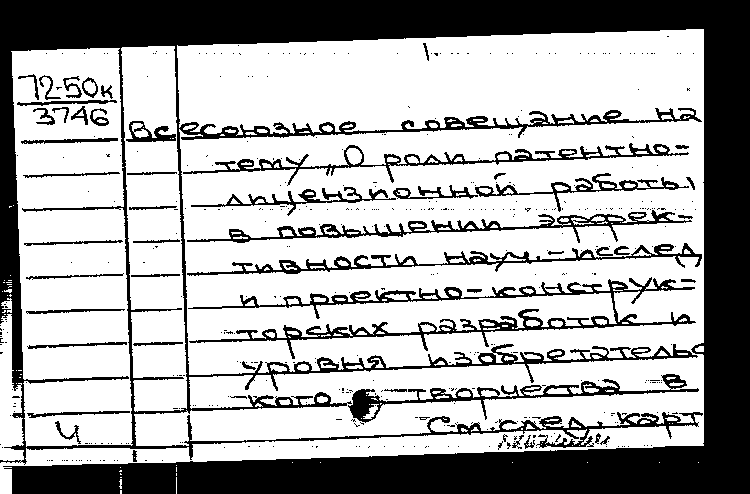 72-50к
3746
Всесоюзное совещание на
тему „О роли патентно-
лицензионной работы
в повышении эффек-
тивности науч.-исслед.
и проектно-конструк-
торских разработок и
уровня изобретательс
кого творчества в
Ч
См. след. карт